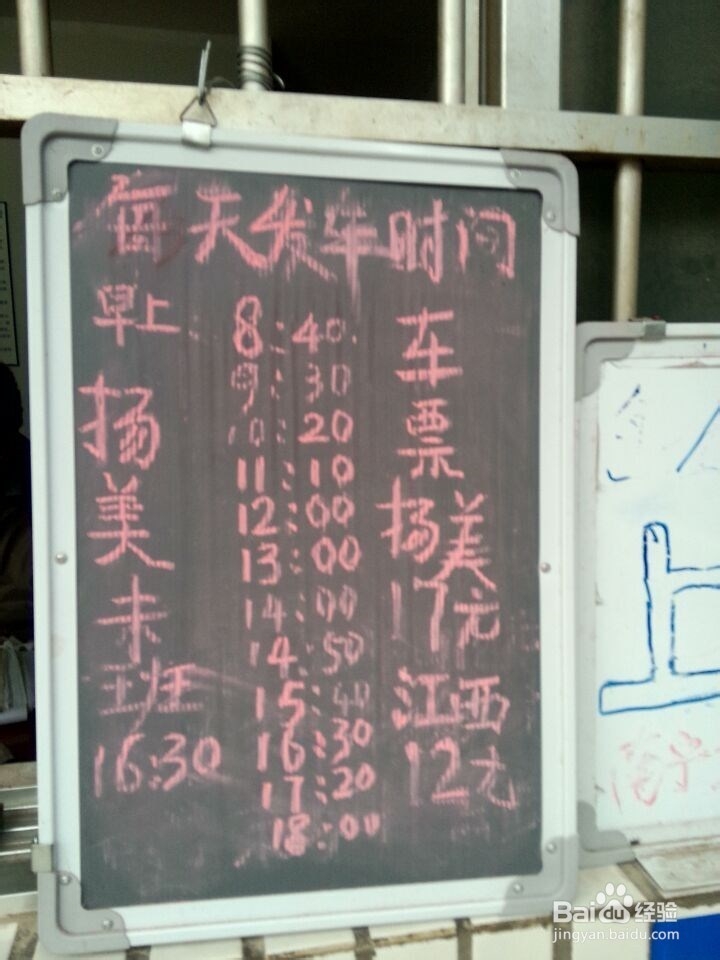 每天发车时间
早上 8:40
9:30
10:20
11:10
12:00
13:00
14:00
14:50
15:40
16:30
17:20
18:00
扬美未班
16:30
车票
扬美
17元
江西
12元
Baidu经验
jingyan.baidu.com